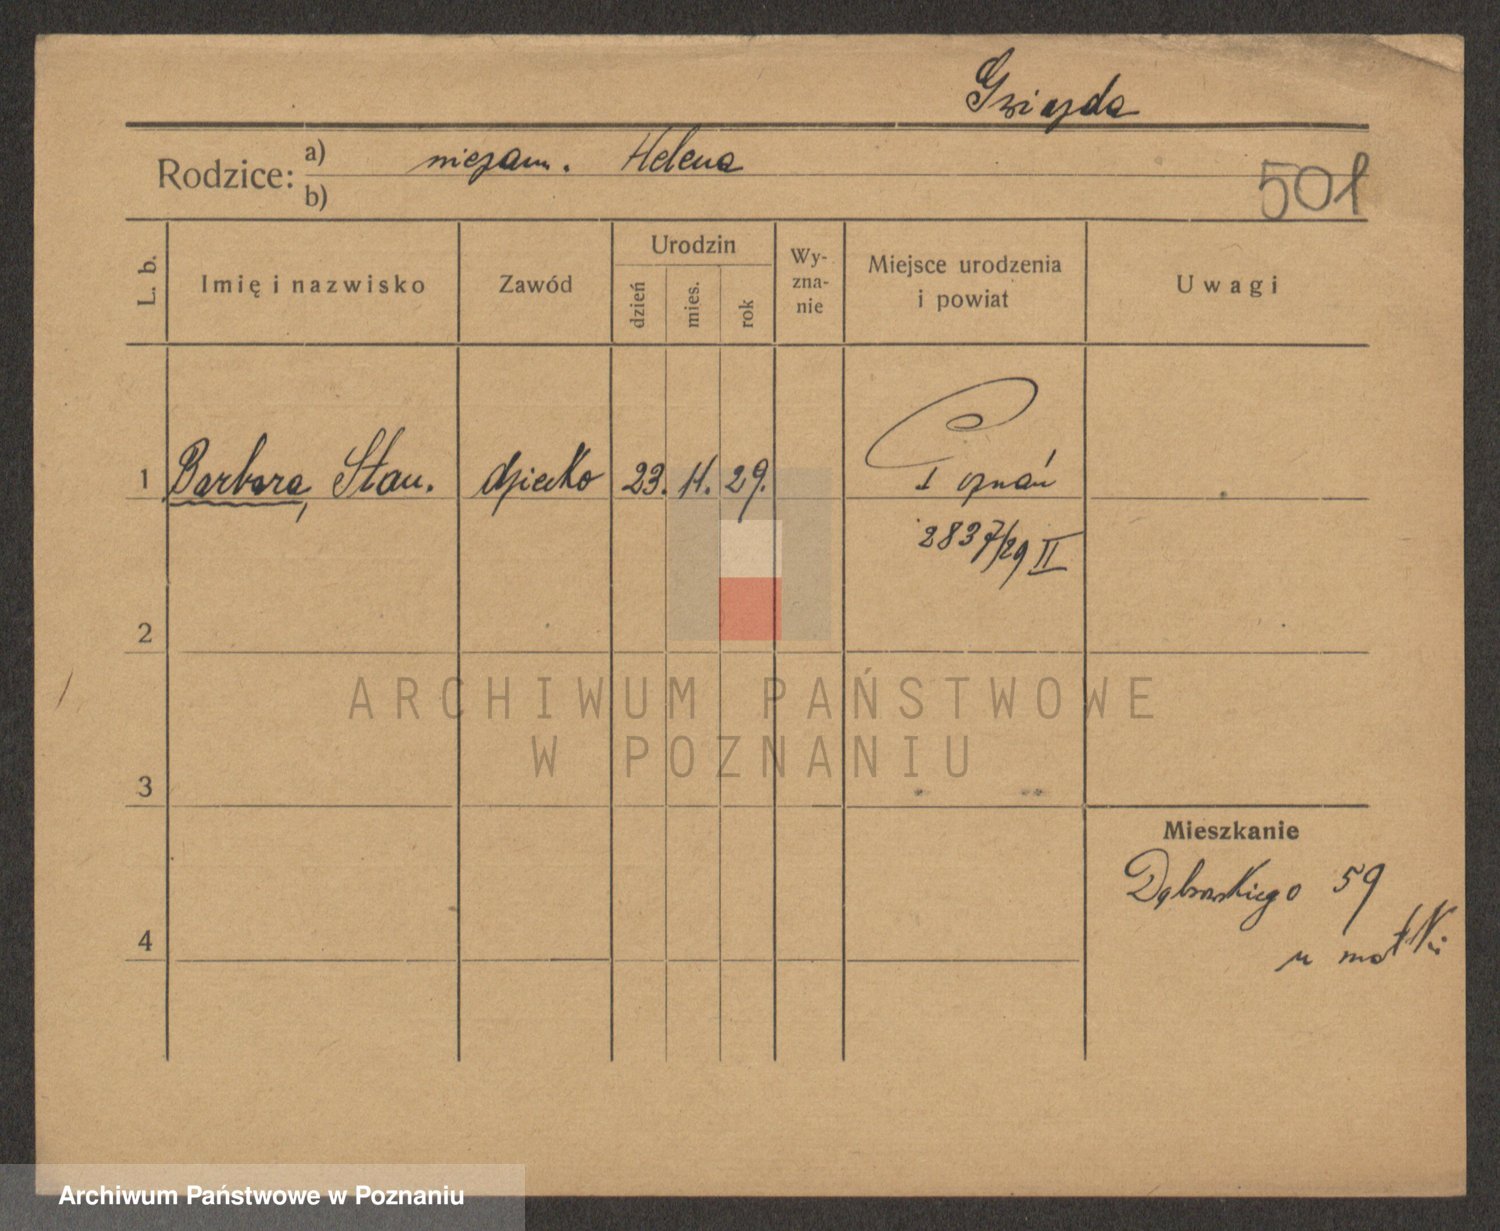 Gwiazda
Rodzice: a) niezam. Helena
b)
501
L. b.
Imię i nazwisko
Zawód
Urodzin
dzień
mies.
rok
Wy-
zna-
nie
Miejsce urodzenia
i powiat
Uwagi
1 Barbara, Stan. dziecko 23. 11. 29. Poznań
2837/29 II
2
3
4
Mieszkanie
Dąbrowskiego 59
u matki
ARCHIWUM PAŃSTWOWE
W POZNANIU
Archiwum Państwowe w Poznaniu